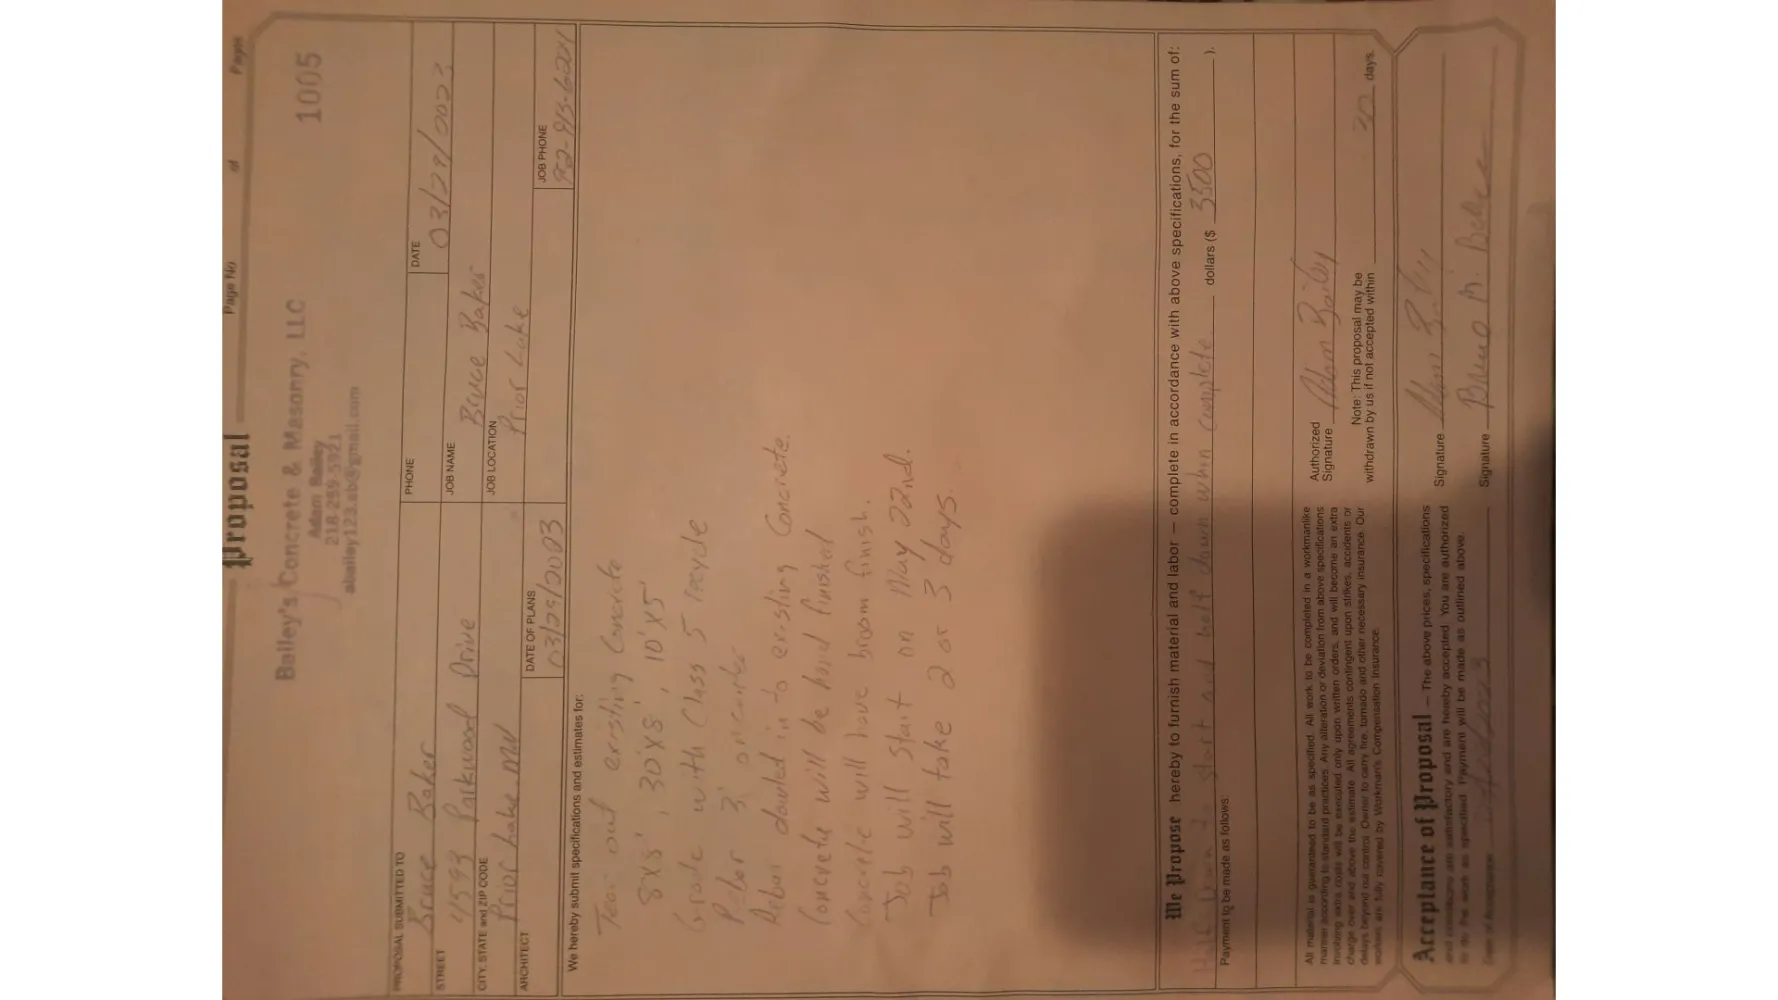 Proposal
Page No. of Pages
Bailey's Concrete & Masonry, LLC
Adam Bailey
218-259-5921
abailey123.ab@gmail.com
1005
PROPOSAL SUBMITTED TO
Bruce Baker
PHONE
DATE
03/29/0023
STREET
4593 Parkwood Drive
JOB NAME
Bruce Baker
CITY, STATE and ZIP CODE
Prior Lake, MN
JOB LOCATION
Prior Lake
ARCHITECT
DATE OF PLANS
03/29/2003
JOB PHONE
952-913-6204
We hereby submit specifications and estimates for:
Tear out existing Concrete
8'x8', 30'x8', 10'x5'
Grade with Class 5 recycle
Rebar 3' on center
Rebar doweled into existing Concrete.
Concrete will be hand finished
Concrete will have broom finish.
Job will start on May 22nd.
Job will take 2 or 3 days.
We Propose hereby to furnish material and labor — complete in accordance with above specifications, for the sum of:
Half Down to start and half down when complete. dollars ($ 3500 ).
Payment to be made as follows:
All material is guaranteed to be as specified. All work to be completed in a workmanlike
manner according to standard practices. Any alteration or deviation from above specifications
involving extra costs will be executed only upon written orders, and will become an extra
charge over and above the estimate. All agreements contingent upon strikes, accidents or
delays beyond our control. Owner to carry fire, tornado and other necessary insurance. Our
workers are fully covered by Workman's Compensation Insurance.
Authorized
Signature Adam Bailey
Note: This proposal may be
withdrawn by us if not accepted within 30 days.
Acceptance of Proposal — The above prices, specifications
and conditions are satisfactory and are hereby accepted. You are authorized
to do the work as specified. Payment will be made as outlined above.
Date of Acceptance:
Signature Adam Bailey
Signature Bruce A. Baker